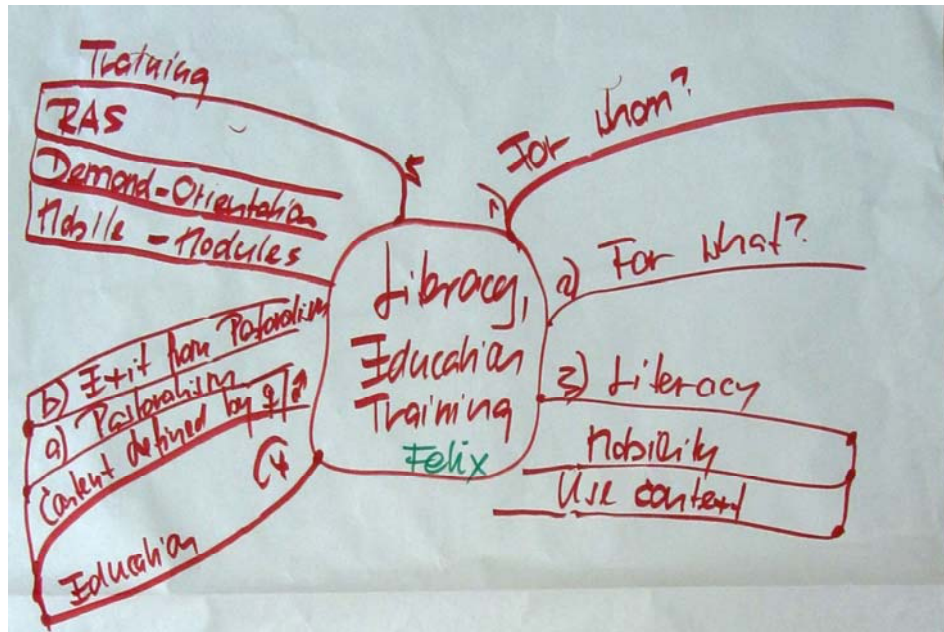 Training
RAS
Demand-Orientation
Mobile-Modules
5
1) For whom?
2) For what?
Literacy,
Education
Training
Felix
3) Literacy
Mobility
Use context
b) Exit from Pastoralism
a) Pastoralism
Content defined by ♀|♂
4)
Education